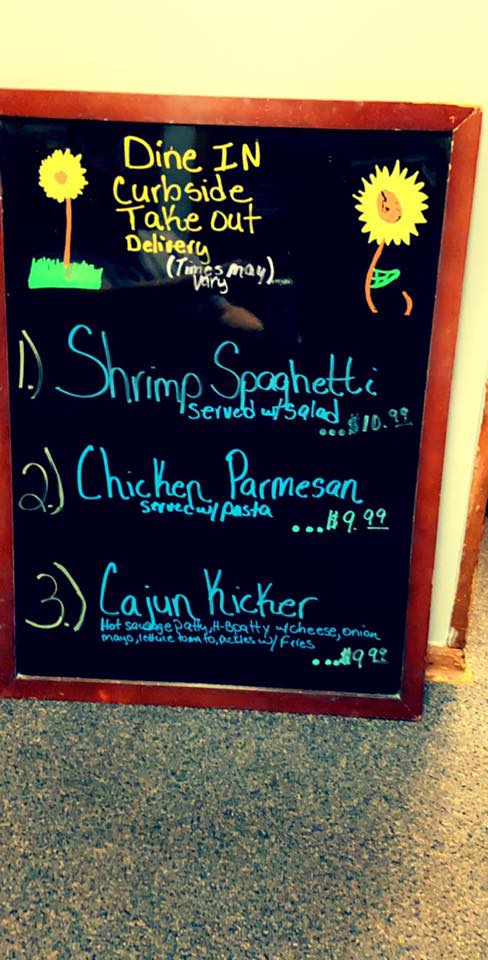 Dine IN
Curbside
Take out
Delivery
(Times may)
vary
1.) Shrimp Spaghetti
served w/salad
...$10.99
2.) Chicken Parmesan
served w/ pasta
...$9.99
3.) Cajun Kicker
Hot sausage Patty, H-B patty w/cheese, onion
mayo, lettuce tomato, pickles w/ Fries
...$9.99